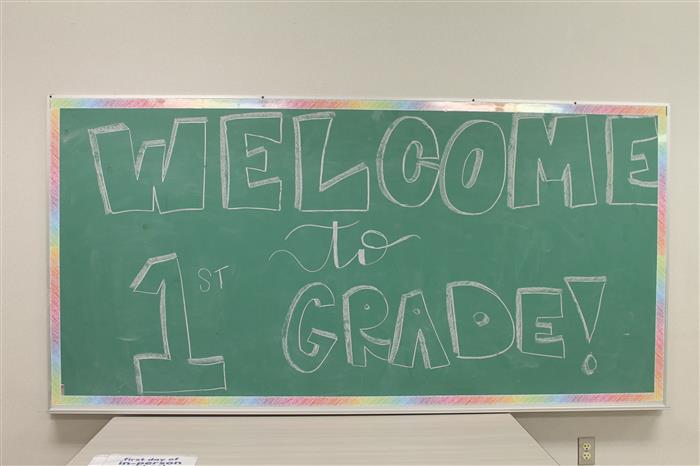 WELCOME
to
1ST GRADE!
first day of
in-person